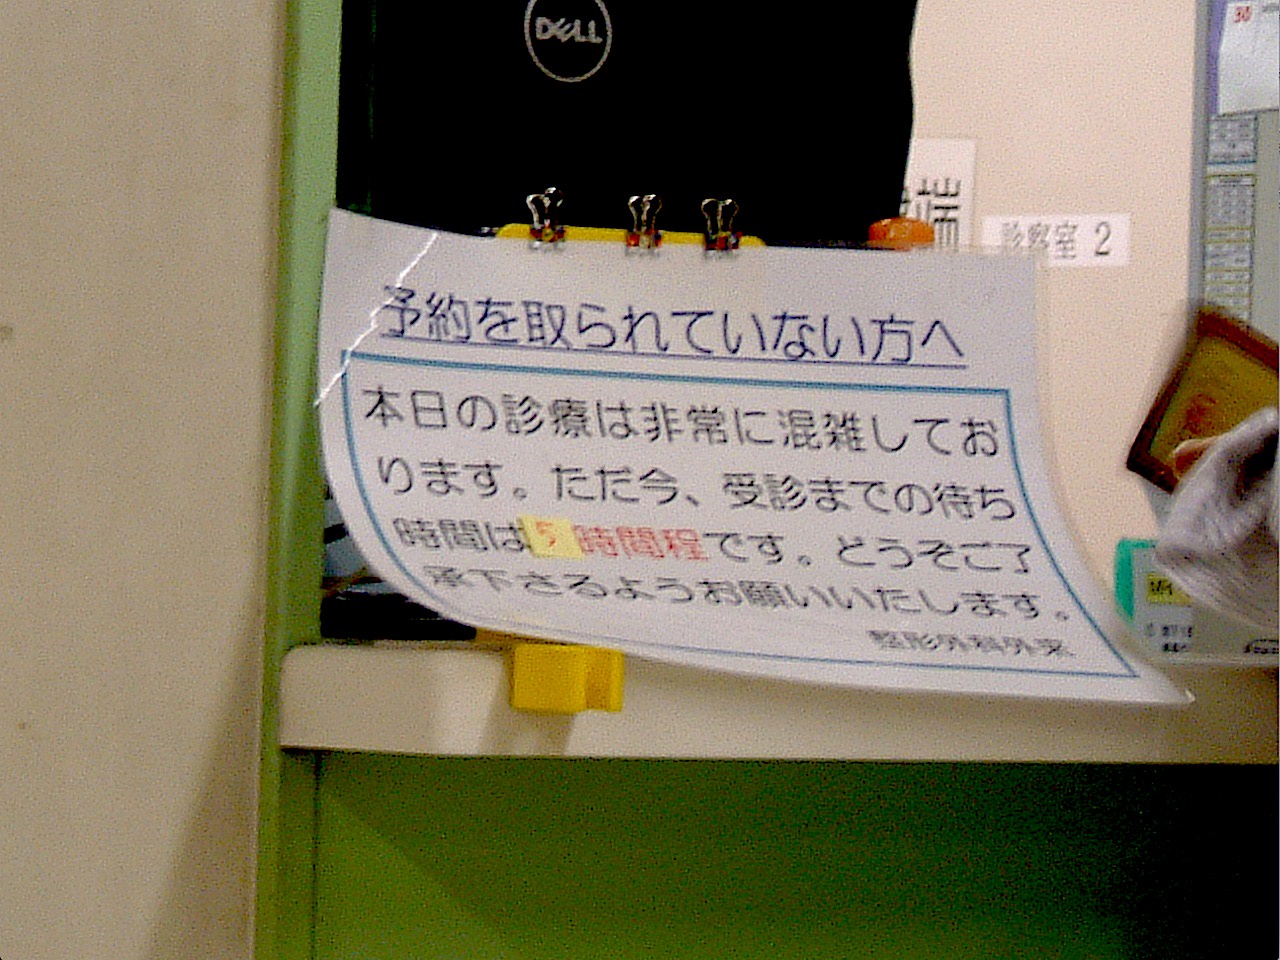 DELL
30
診察室 2
予約を取られていない方へ
本日の診療は非常に混雑してお
ります。ただ今、受診までの待ち
時間は5時間程です。どうぞご了
承下さるようお願いいたします。
整形外科外来